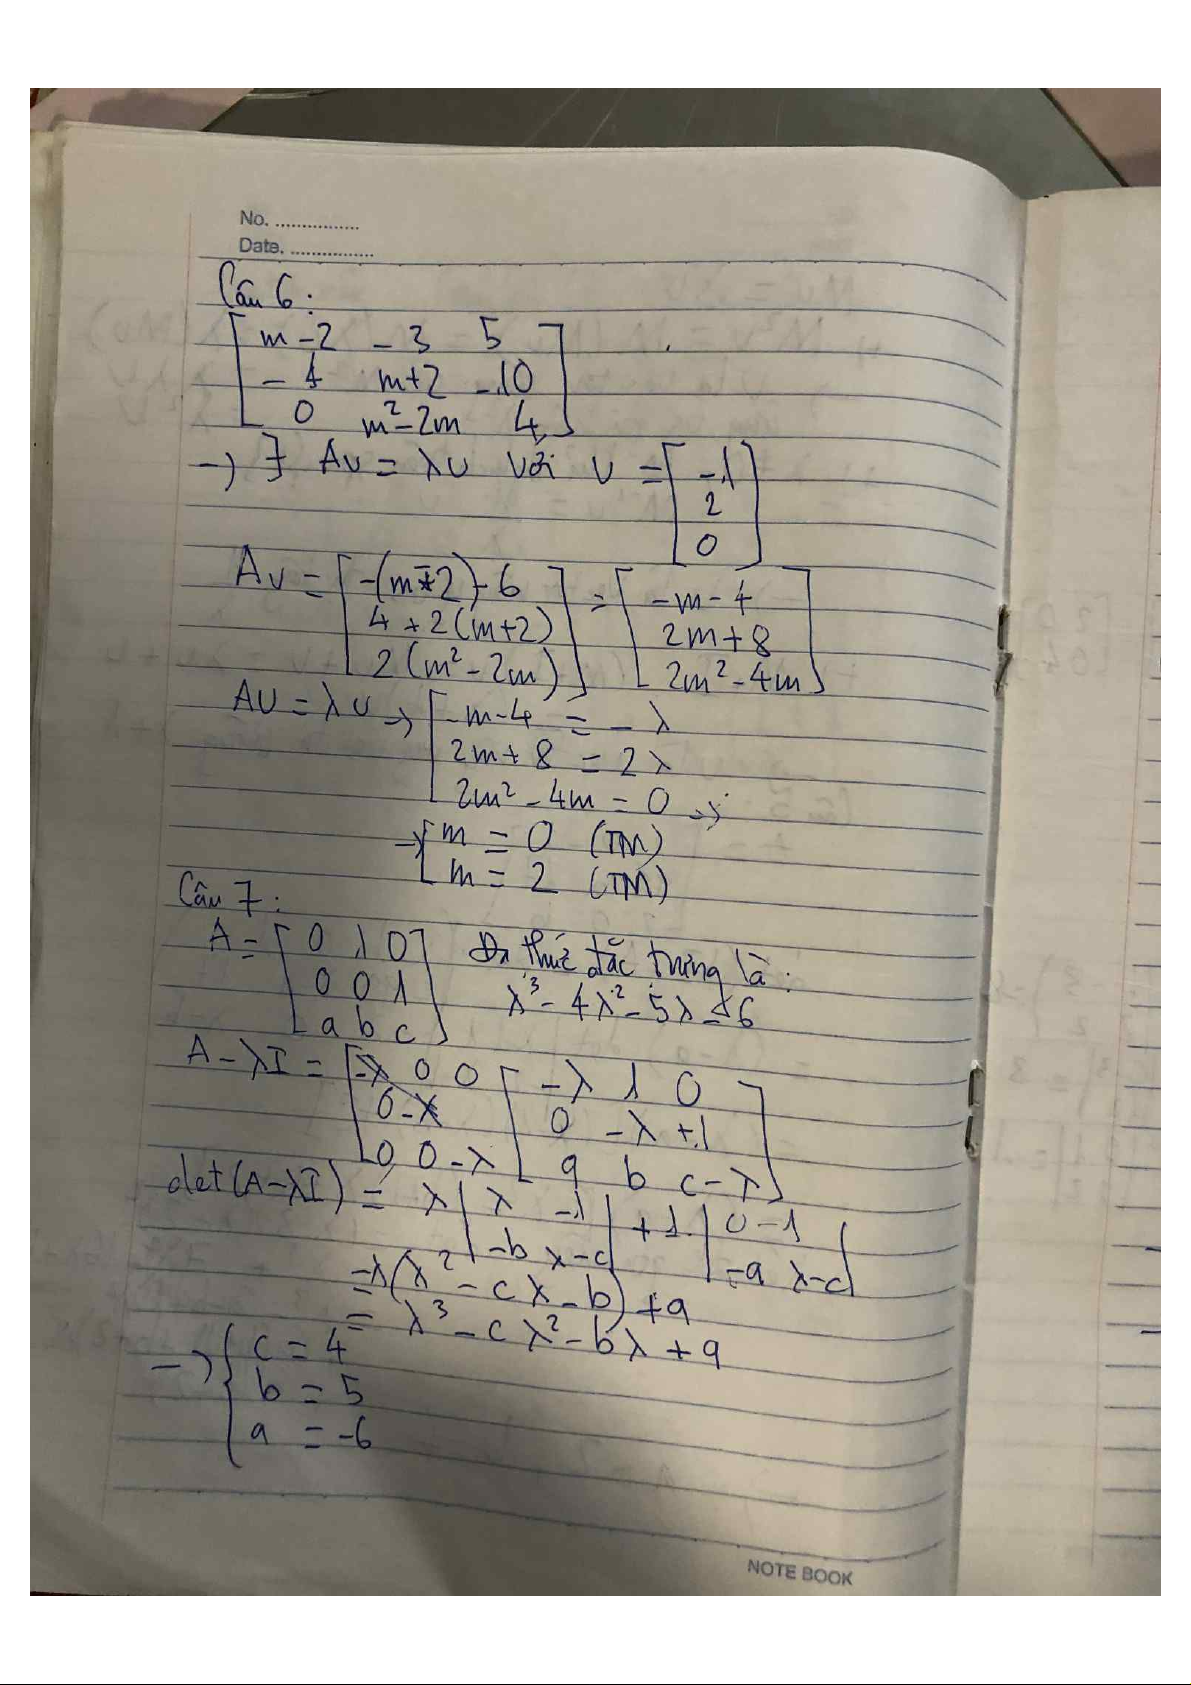 No. ................
Date. ................
Câu 6 :
[ m-2 -3 5
-4 m+2 -10
0 m²-2m 4 ]
-> ∃ Av = λv với v = [ -1
2
0 ]
Av = [ -(m-2)-6 ] = [ -m-4 ]
[ 4+2(m+2) ] [ 2m+8 ]
[ 2(m²-2m) ] [ 2m²-4m ]
Av = λv -> [ -m-4 = -λ
2m+8 = 2λ
2m²-4m = 0 ->
-> [ m = 0 (TM)
m = 2 (TM)
Câu 7 :
A = [ 0 1 0 ] Đa thức đặc trưng là :
[ 0 0 1 ] λ³ - 4λ² - 5λ - 6
[ a b c ]
A - λI = [ -λ 0 0 [ -λ 1 0 ]
0 -λ 0 -λ +1
0 0 -λ [ a b c-λ ]
det(A-λI) = λ | λ -1 | + 1. | 0 -1 |
| -b λ-c | | -a λ-c |
= -λ(λ² - cλ - b) + a
= λ³ - cλ² - bλ + a
-> { c = 4
b = 5
a = -6
NOTE BOOK